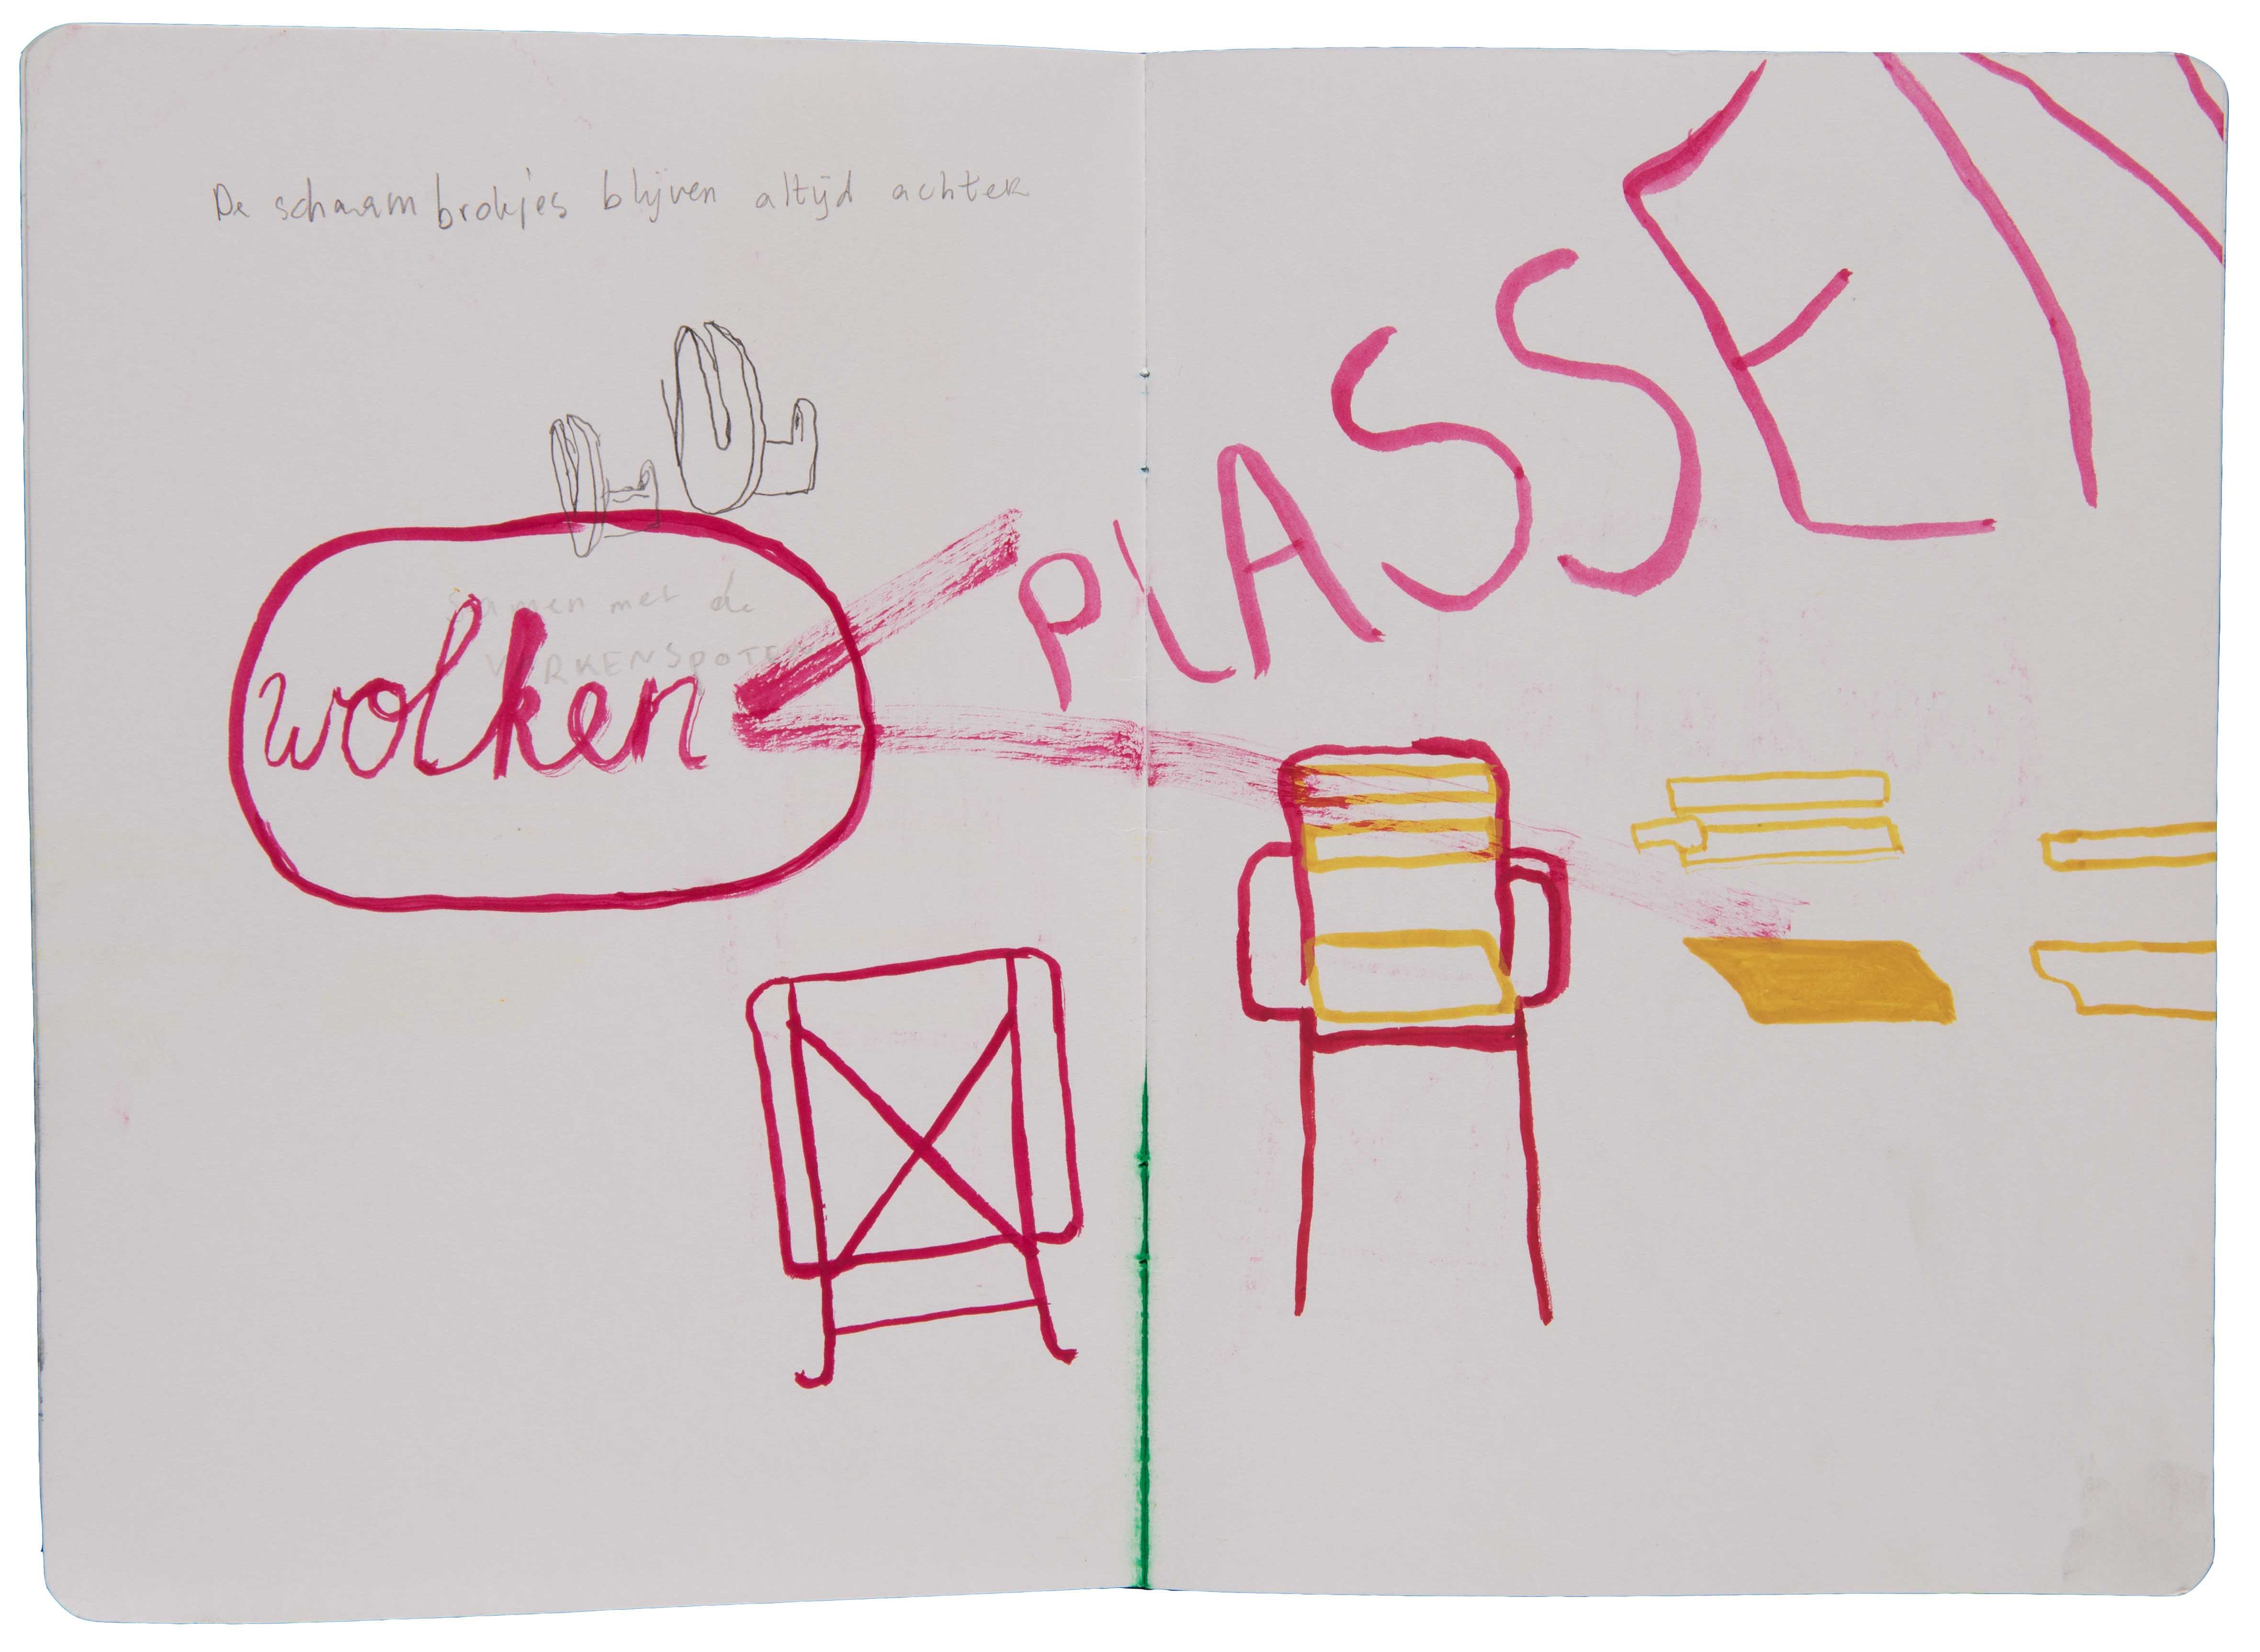 De schaambrokjes blijven altijd achter
samen met de
VARKENSPOTEN
wolken
PLASSEN